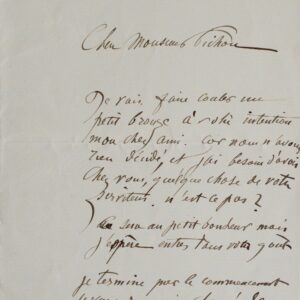 Cher Monsieur Pichon
Je vais faire couler un
petit bronze à votre intention
mon cher ami. Car nous n'avons
rien décidé, et j'ai besoin d'avoir
chez vous, quelque chose de votre
serviteur n'est ce pas ?
Ce sera au petit bonheur mais
j'espère entre dans votre gout
je termine par le commencement